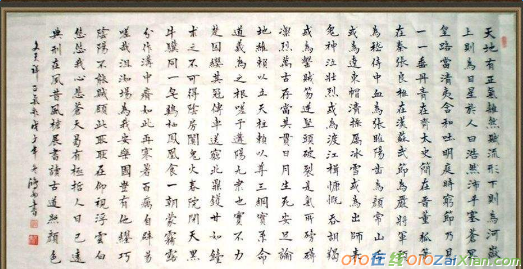 天地有正氣雜然賦流形下則為河嶽
上則為日星於人曰浩然沛乎塞蒼冥
皇路當清夷含和吐明庭時窮節乃見
一一垂丹青在齊太史簡在晉董狐筆
在秦張良椎在漢蘇武節為嚴將軍頭
為嵇侍中血為張睢陽齒為顏常山舌
或為遼東帽清操厲冰雪或為出師表
鬼神泣壯烈或為渡江楫慷慨吞胡羯
或為擊賊笏逆豎頭破裂是氣所磅礴
凜烈萬古存當其貫日月生死安足論
地維賴以立天柱賴以尊三綱實系命
道義為之根嗟予遘陽九隸也實不力
楚囚纓其冠傳車送窮北鼎鑊甘如飴
求之不可得陰房闃鬼火春院閟天黑
牛驥同一皂雞棲鳳凰食一朝蒙霧露
分作溝中瘠如此再寒暑百癘自辟易
嗟哉沮洳場為我安樂國豈有他繆巧
陰陽不能賊顧此耿耿在仰視浮雲白
悠悠我心悲蒼天曷有極哲人日已遠
典刑在夙昔風簷展書讀古道照顏色
文天祥正氣歌戊子年書
oto在线
otoZaiXian.com